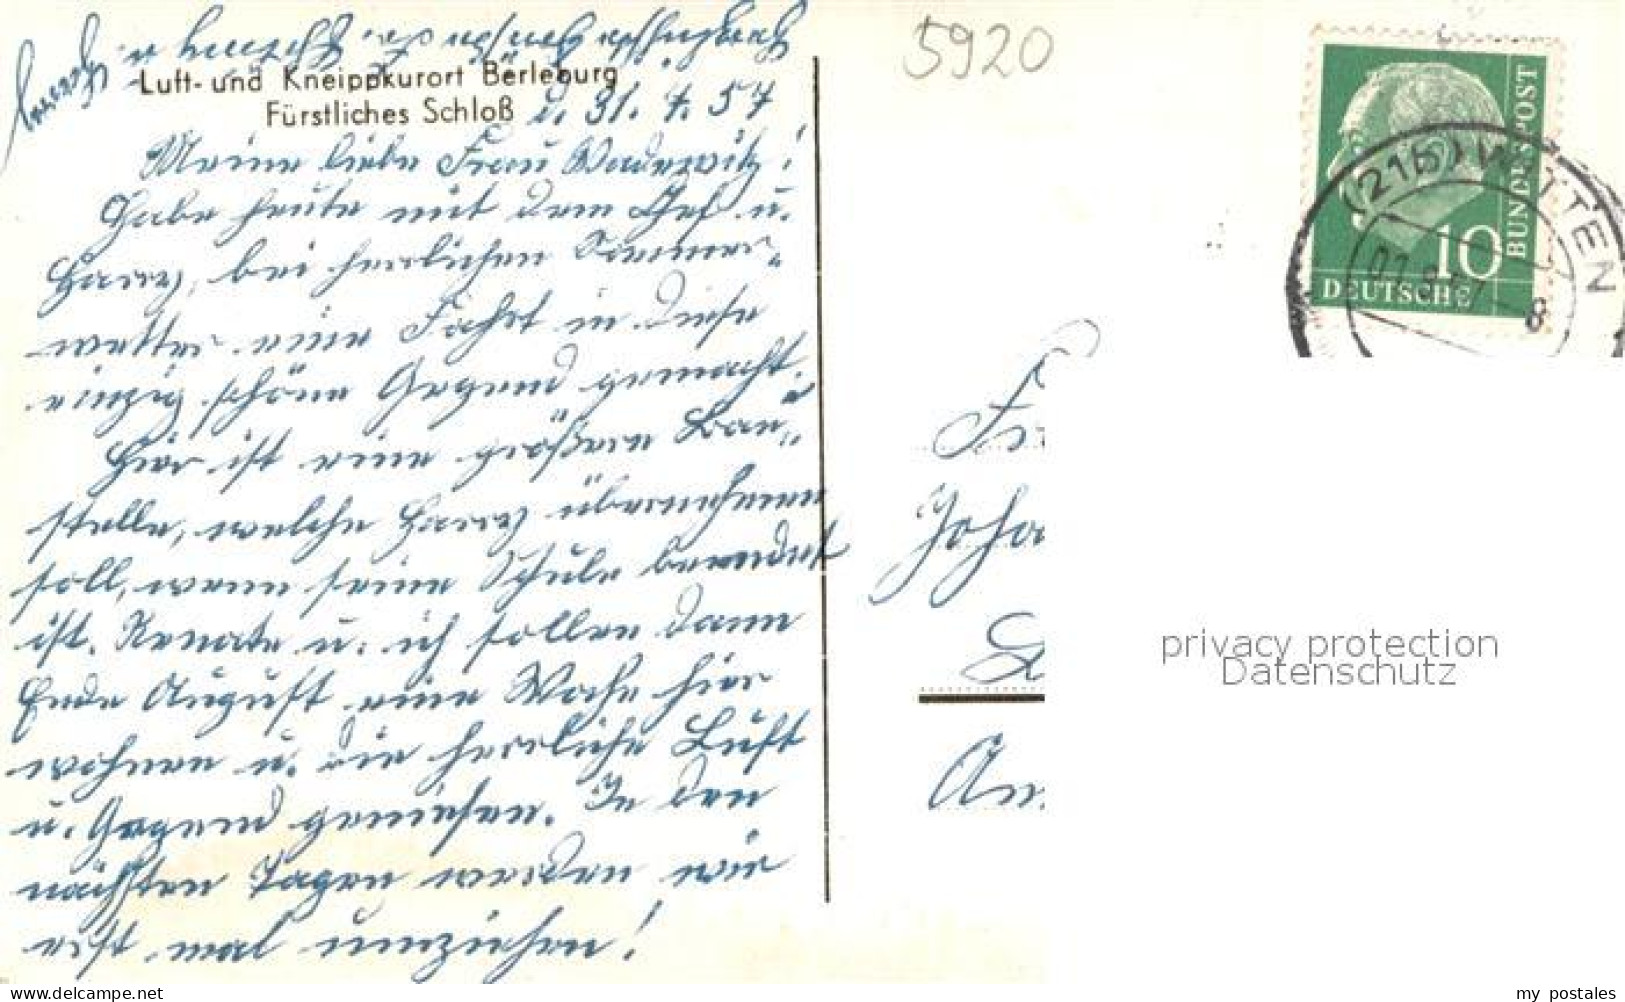 Luft- und Kneippkurort Berleburg
Fürstliches Schloß
d. 31. 7. 57
Meine liebe Frau Wadewitz!
Habe heute mit dem Chef u.
Harry, bei herrlichen Sommer-
wetter eine Fahrt in diese
einzig schöne Gegend gemacht.
Hier ist eine größere Bau-
stelle, welche Harry übernehmen
soll, wenn seine Schule beendet
ist. Renate u. ich sollen dann
Ende August eine Woche hier
wohnen u. die herrliche Luft
u. Gegend genießen. In den
nächsten Tagen werden wir
erst mal umziehen!
Herzlichste Grüße
5920
10
DEUTSCHE
BUNDESPOST
(21b) WITTEN
Fr
Joha
An
privacy protection
Datenschutz
www.delcampe.net
my_postales